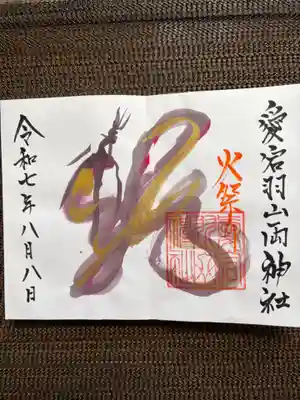 愛宕羽山両神社
火祭
令和七年八月八日